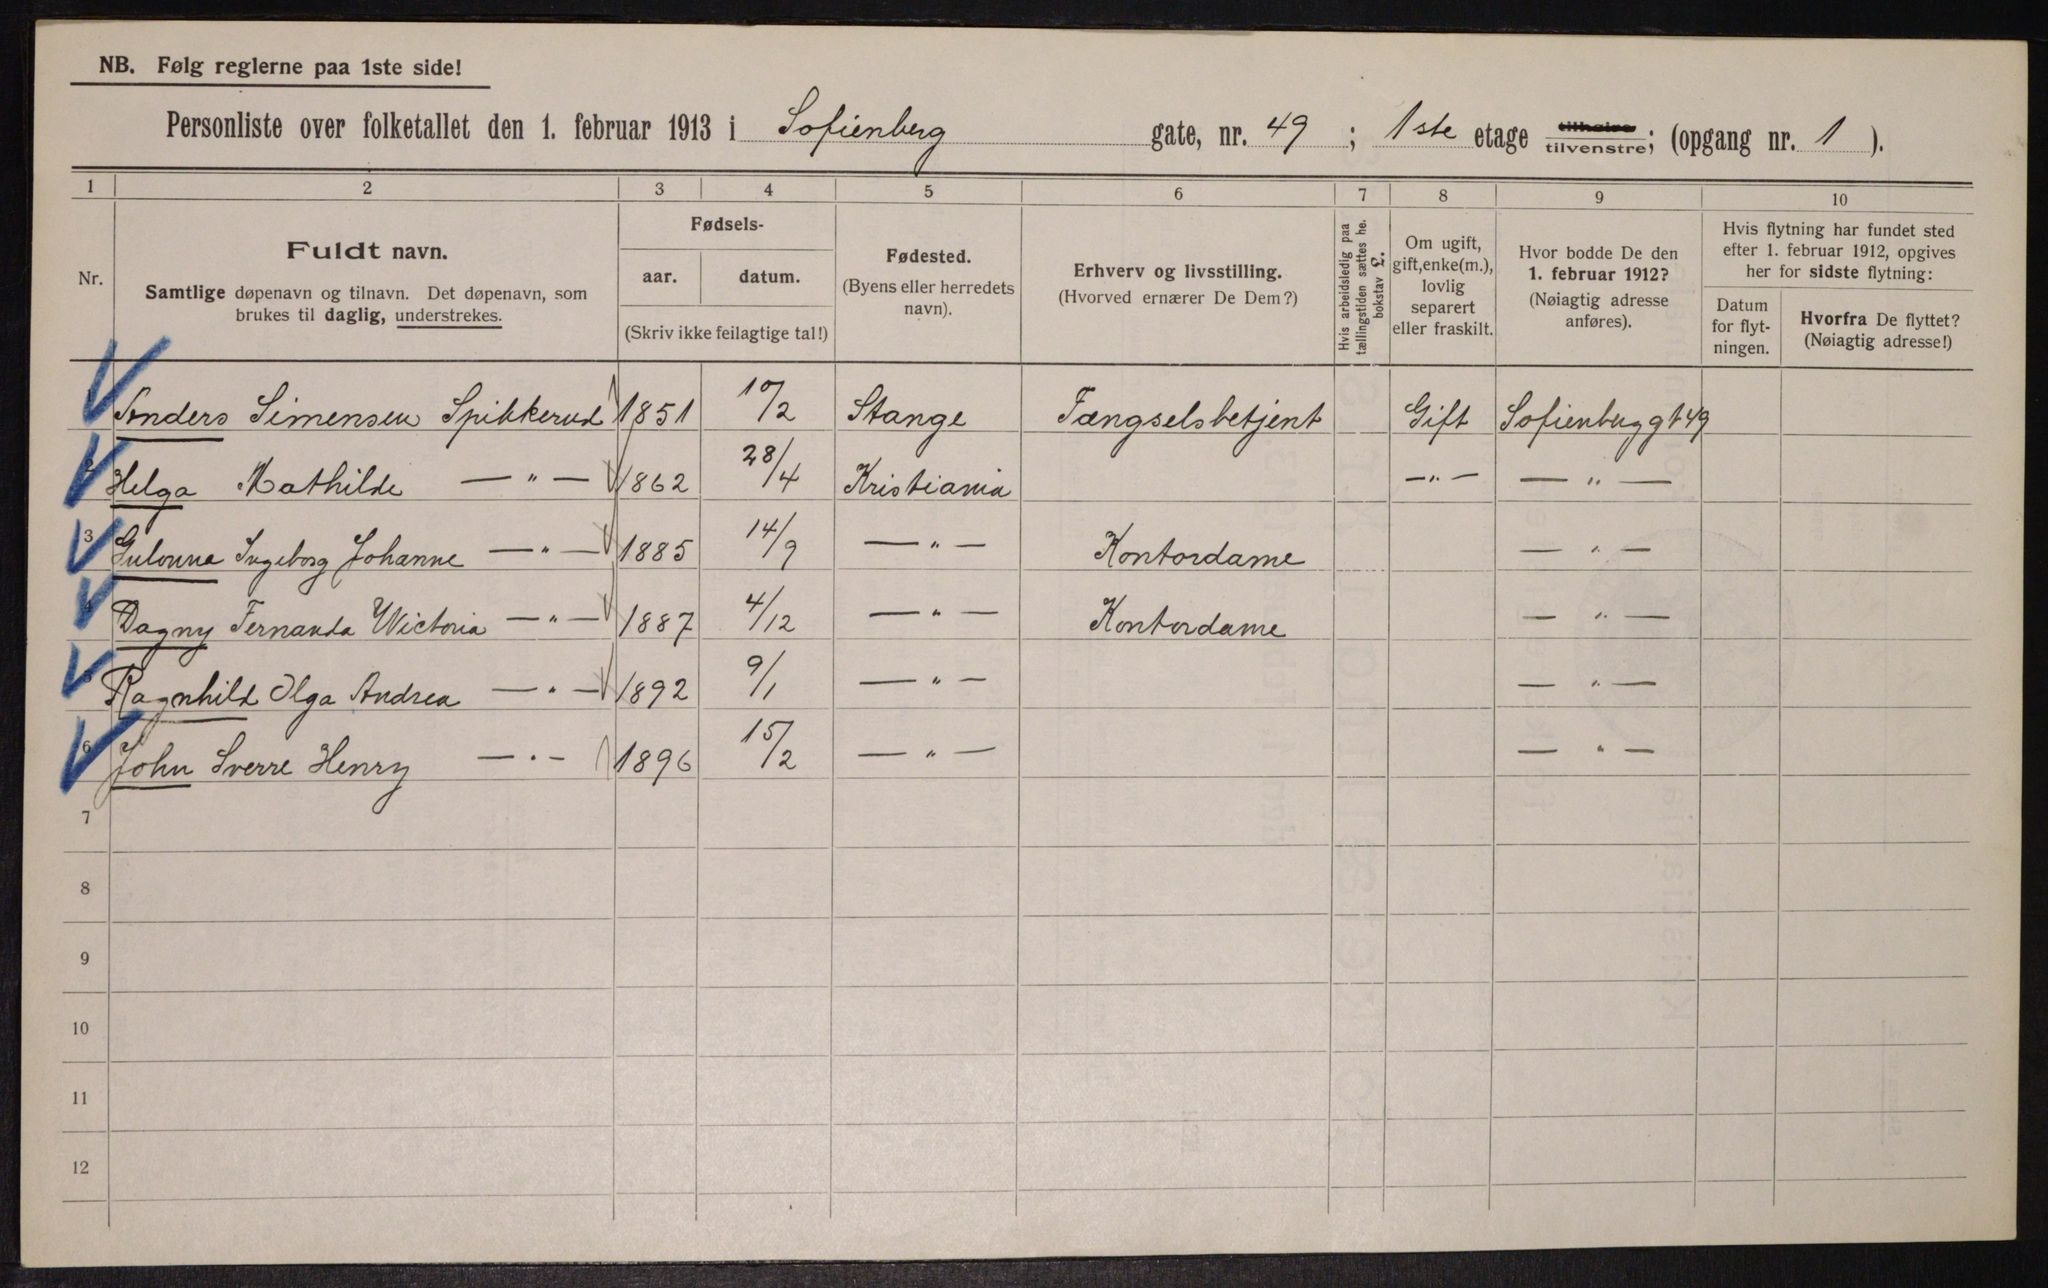 NB. Følg reglerne paa 1ste side!
Personliste over folketallet den 1. februar 1913 i Sofienberg gate, nr. 49; 1ste etage tilhøire tilvenstre; (opgang nr. 1).
1 2 3 4 5 6 7 8 9 10
Nr.
Fuldt navn.
Samtlige døpenavn og tilnavn. Det døpenavn, som
brukes til daglig, understrekes.
Fødsels-
aar. datum.
(Skriv ikke feilagtige tal!)
Fødested.
(Byens eller herredets
navn).
Erhverv og livsstilling.
(Hvorved ernærer De Dem?)
Hvis arbeidsledig paa
tællingstiden sættes he.
bokstav L.
Om ugift,
gift, enke(m.),
lovlig
separert
eller fraskilt.
Hvor bodde De den
1. februar 1912?
(Nøiagtig adresse
anføres).
Hvis flytning har fundet sted
efter 1. februar 1912, opgives
her for sidste flytning:
Datum
for flyt-
ningen.
Hvorfra De flyttet?
(Nøiagtig adresse!)
1 Anders Simensen Spikkerud 1851 10/2 Stange Fængselsbetjent Gift Sofienberggt 49
2 Helga Mathilde — " — 1862 28/4 Kristiania — " — — " —
3 Ingeborg Johanne — " — 1885 14/9 — " — Kontordame — " —
4 Dagny Fernanda Wictoria — " — 1887 4/12 — " — Kontordame — " —
5 Ragnhild Olga Andrea — " — 1892 9/1 — " — — " —
6 John Sverre Henry — " — 1896 15/2 — " — — " —
7
8
9
10
11
12